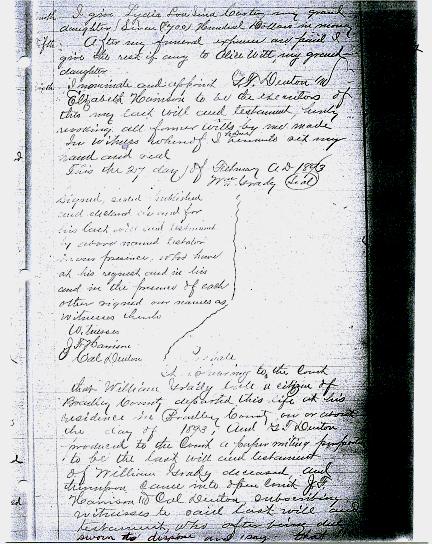 I give Lydia Louisina Couts my grand
daughter Seven ($700) Hundred Dollars in money
After my funeral expenses are paid I
give the rest if any to Alice Witt, my grand
daughter
I nominate and appoint G.F. Denton &
Elizabeth Harrison to be the executors of
this my last will and testament, hereby
revoking all former wills by me made
In witness whereof I hereunto set my
hand and seal
This the 27 day of February A.D. 1893
Wm Grady (Seal)
Signed, sealed published
and declared as and for
his last will and testament
by above named testator
in our presence, who have
at his request and in his
and in the presence of each
other signed our names as
witnesses thereto
Witnesses
J F Harrison
Cal Denton
It appearing to the Court
that William Grady late a citizen of
Bradley County departed this life at his
residence in Bradley County on or about
the day of 1893, And G F Denton
produced to the Court a paper writing
to be the last will and testament
of William Grady deceased and
thereupon came into open Court J.F.
Harrison & Cal Denton subscribing
witnesses to said last will and
testament, who after being duly
sworn to depose and say that